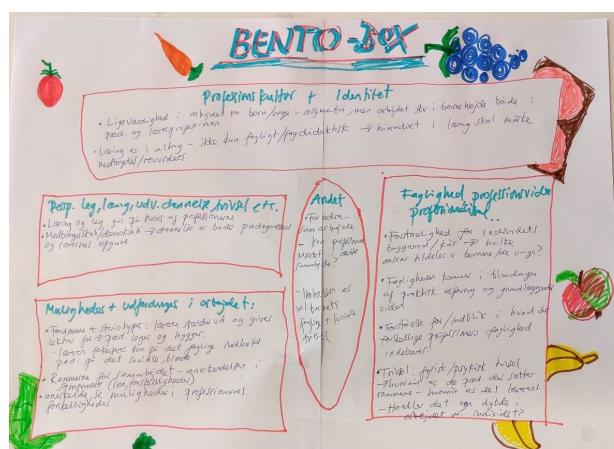 BENTO-BOX
Professionskultur + Identitet
• Ligeværdighed i arbejdet m børn/unge - asymmetri, men arbejdet sker i børnehøjde både i
pæd- og lærerprofessionen.
• Læring er i alting - ikke kun fagligt/fagdidaktisk → hierarkiet i læring skal måske
nedbrydes/revurderes.
Persp. leg, læring, udv. dannelse, trivsel etc.
• Læring og leg går på tværs af professionerne
• Medborgerskab/demokrati → dannelse er både pædagogernes
og lærernes opgave
Muligheder + udfordringer i arbejdet:
• Fordomme + stereotyper: læreren skælder ud og giver
lektier for → pæd leger og hygger.
- læreren fokuserer kun på det faglige indhold
pæd. på det sociale, bløde
• Rammerne for samarbejdet - anerkendelsen i
samfundet (lønforskelligheder)
• anerkende, se muligheder i professionernes
forskelligheder
Andet
• Forældre-
samarbejde
- kan professionerne
mødes i dette
samarbejde?
- Interessen er
vel barnets
faglige + sociale
trivsel
Faglighed, professionsviden
professionalisme..
• Forståelighed for individets
baggrund/kår → hvilke
ansvar tildeles v børnene/de unge?
• Fagligheden kommer i blandingen
af praktisk erfaring og grundlæggende
viden
• Forståelse for/indblik i hvad de
forskellige professioners faglighed
indebærer.
• Trivsel: fysisk/psykisk trivsel
- hvornår er de pæd der sætter
rammerne - hvornår er det læreren.
- Handler det om dybde i
arbejdet m individet?